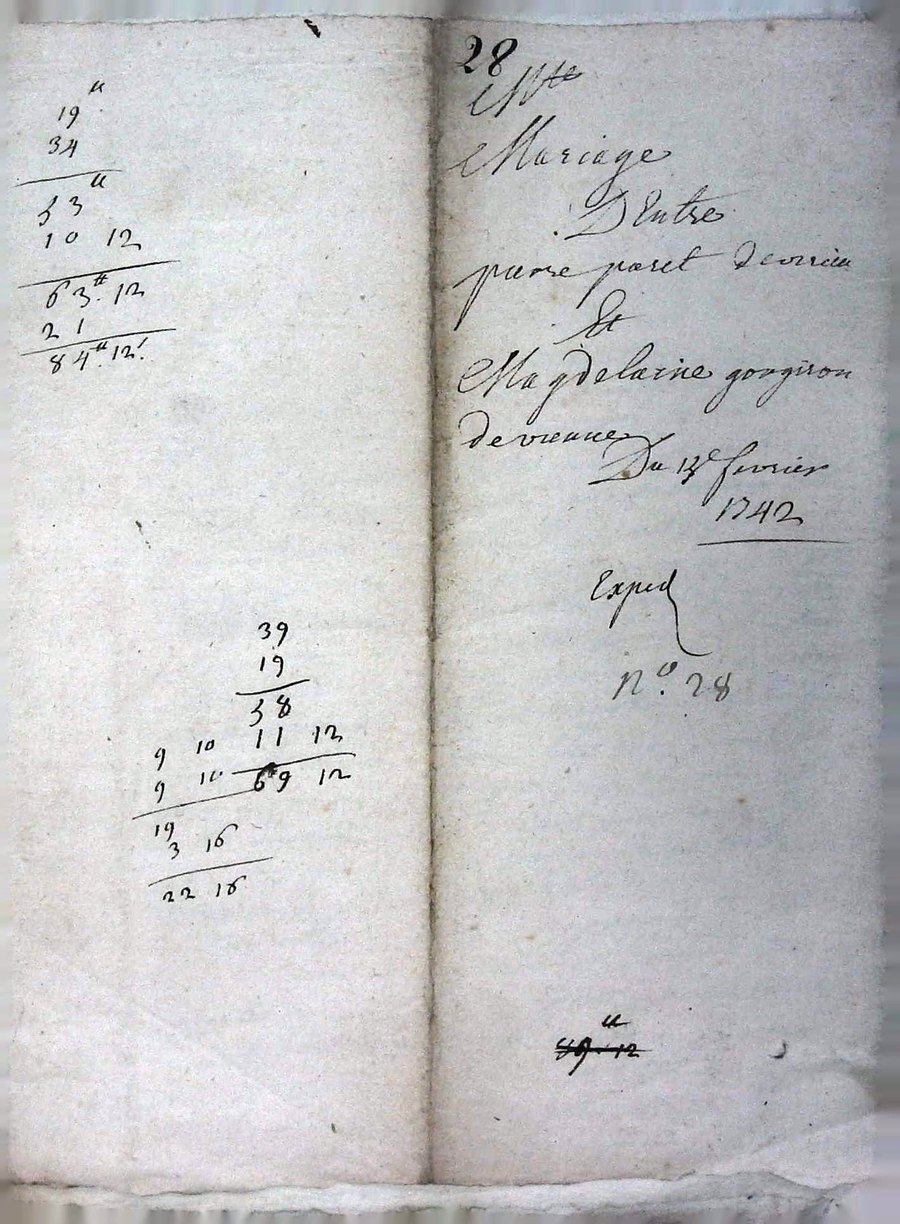 19 ₶
34
53 ₶
10 12
63 ₶ 12
21
84 ₶ 12ˢ
39
19
58
9 10 11 12
9 10 69 12
19
3 16
22 16
28
Mariage
D Entre
pierre paret
Et
Magdelaine gongiron
de vienne
Du 13e fevrier
1742
Exped
n.º 28
89 ₶ 12